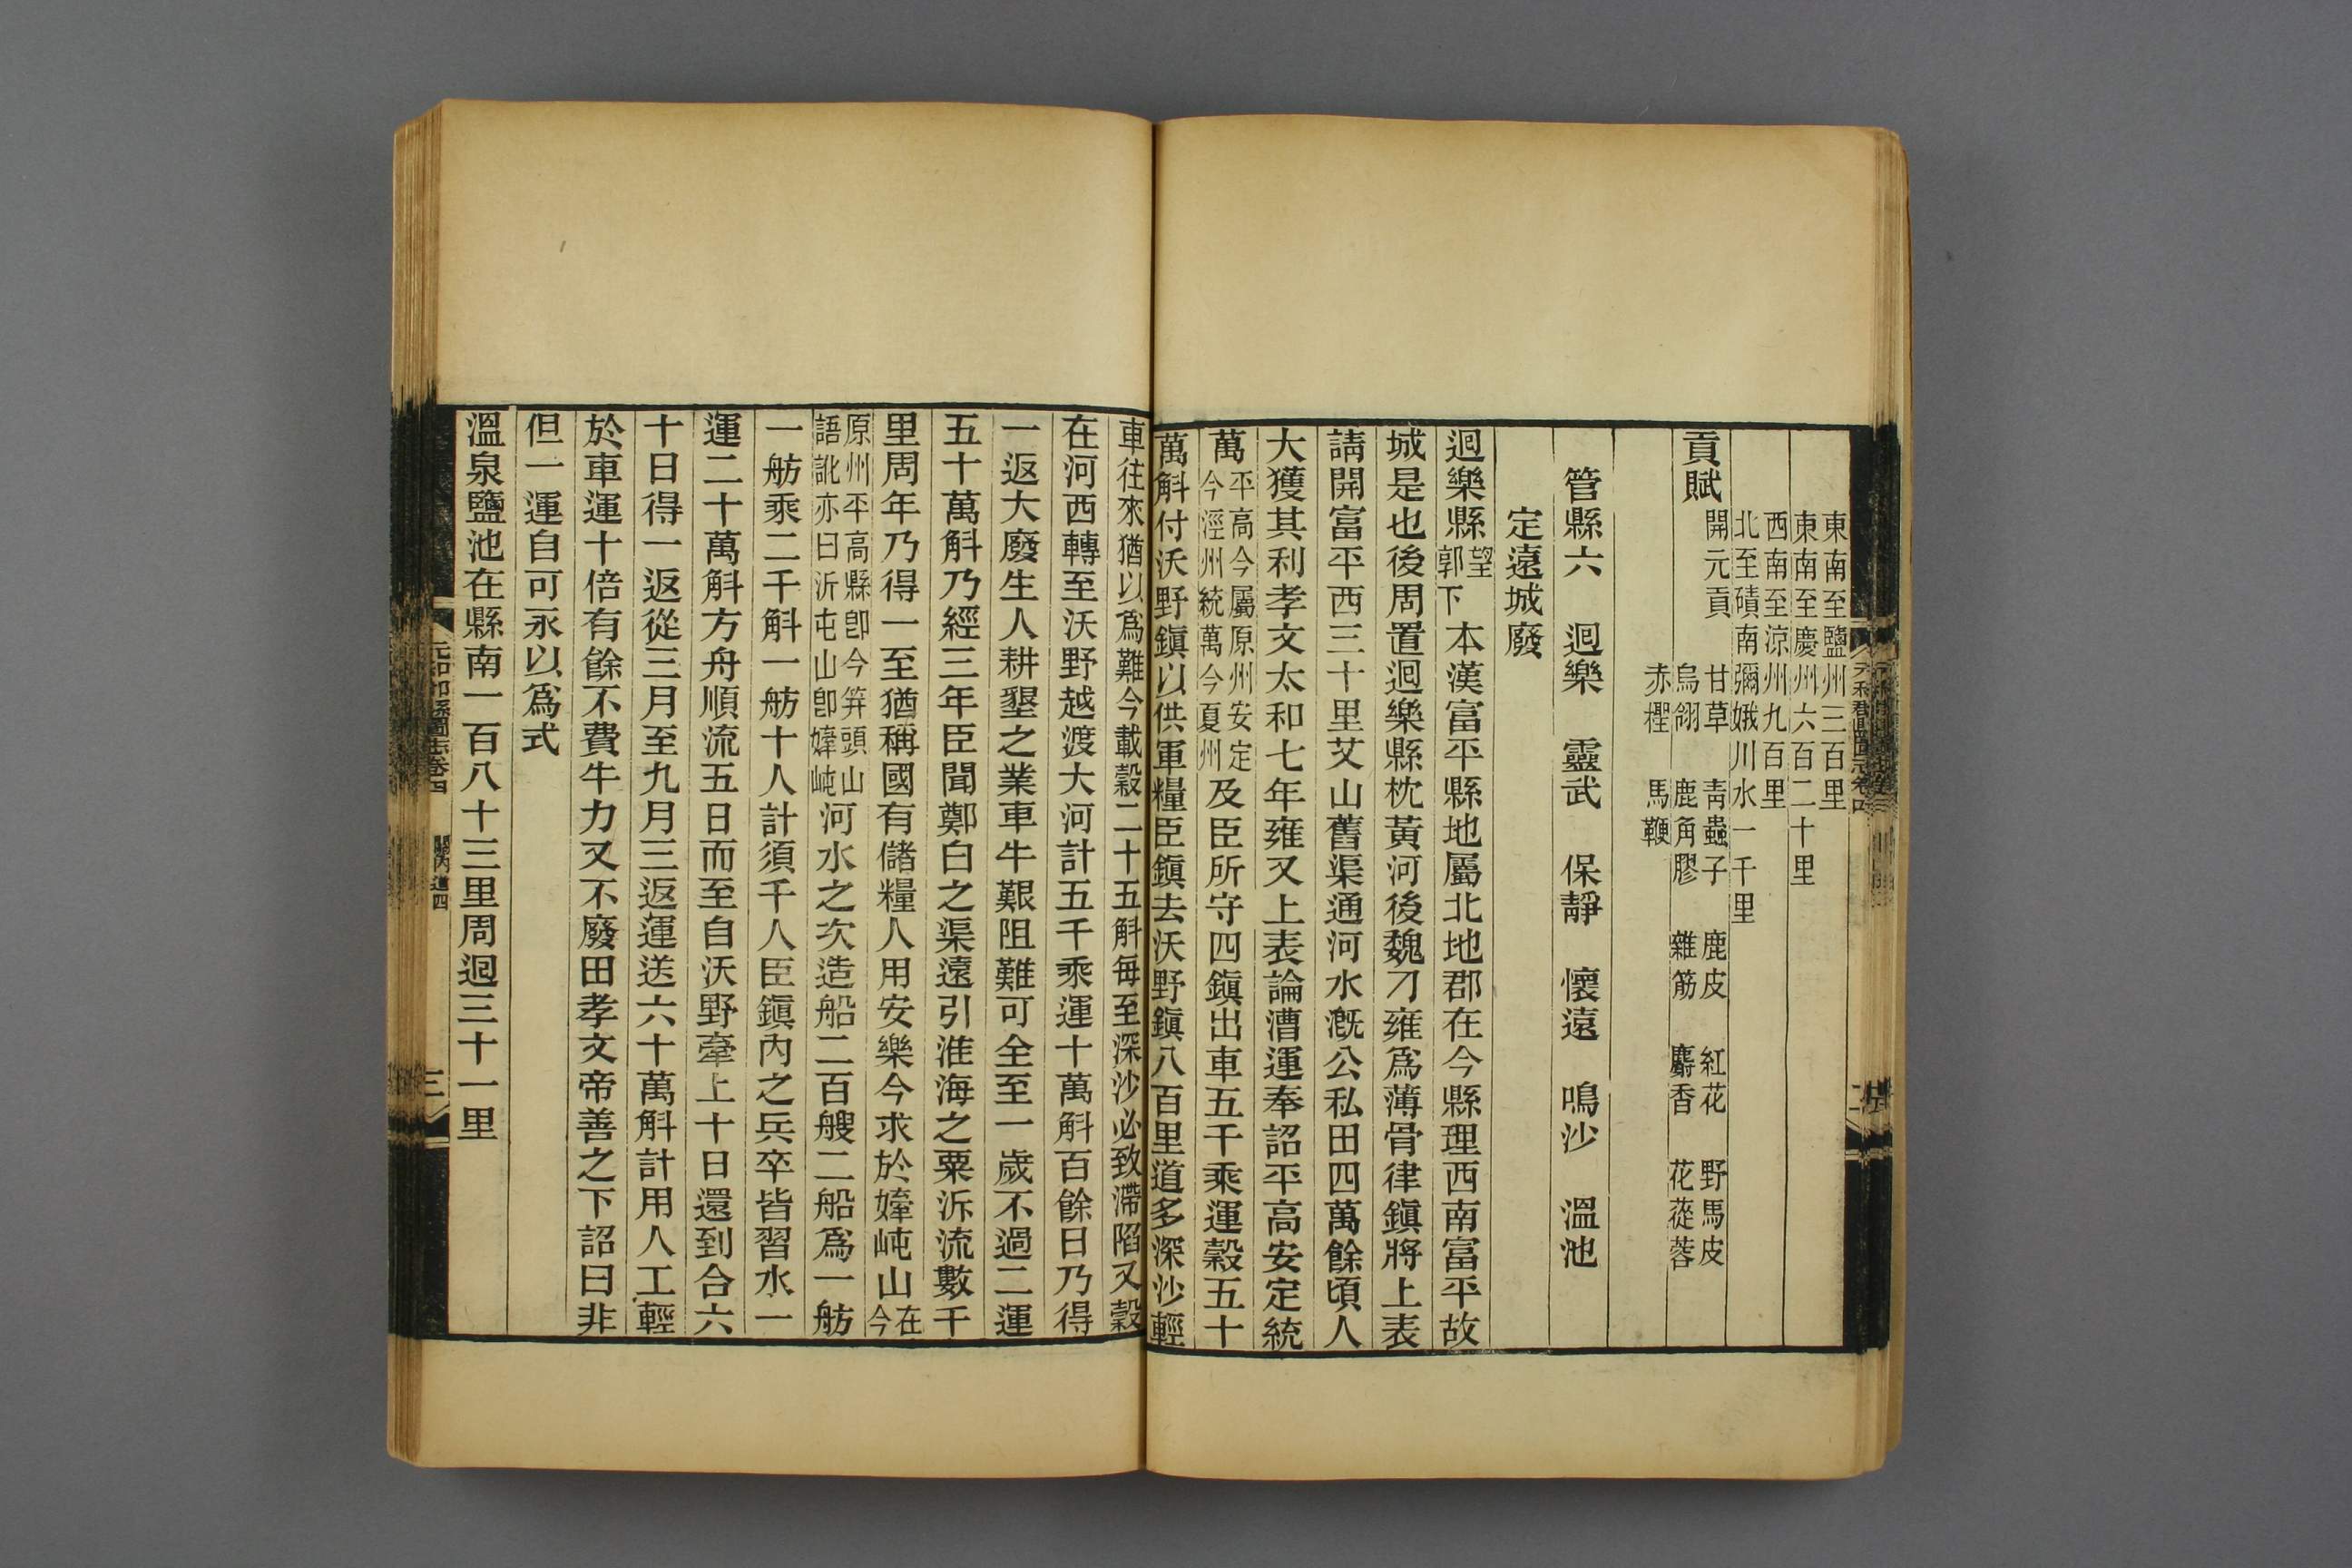 東南至鹽州三百里
東南至慶州六百二十里
西南至涼州九百里
北至磧南彌娥川水一千里
貢賦 開元貢 甘草 青蟲子 鹿皮 紅花 野馬皮
烏翎 鹿角膠 雜筋 麝香 花蓯蓉
赤檉 馬鞭
管縣六 迴樂 靈武 保靜 懷遠 鳴沙 溫池
定遠城廢
迴樂縣望郭下 本漢富平縣地屬北地郡在今縣理西南富平故
城是也後周置迴樂縣枕黃河後魏刁雍爲薄骨律鎭將上表
請開富平西三十里艾山舊渠通河水漑公私田四萬餘頃人
大獲其利孝文太和七年雍又上表論漕運奉詔平高安定統
萬平高今屬原州安定今涇州統萬今夏州及臣所守四鎭出車五千乘運穀五十
萬斛付沃野鎭以供軍糧臣鎭去沃野鎭八百里道多深沙輕
車往來猶以爲難今載穀二十五斛每至深沙必致滯陷又穀
在河西轉至沃野越渡大河計五千乘運十萬斛百餘日乃得
一返大廢生人耕墾之業車牛艱阻難可全至一歲不過二運
五十萬斛乃經三年臣聞鄭白之渠遠引淮海之粟泝流數千
里周年乃得一至猶稱國有儲糧人用安樂今求於㜙屯山在今
原州平高縣卽今笄頭山語訛亦曰沂屯山卽㜙屯河水之次造船二百艘二船爲一舫
一舫乘二千斛一舫十人計須千人臣鎭內之兵卒皆習水一
運二十萬斛方舟順流五日而至自沃野牽上十日還到合六
十日得一返從三月至九月三返運送六十萬斛計用人工輕
於車運十倍有餘不費牛力又不廢田孝文帝善之下詔曰非
但一運自可永以爲式
溫泉鹽池在縣南一百八十三里周迴三十一里
元和郡縣圖志卷四 關內道四 三